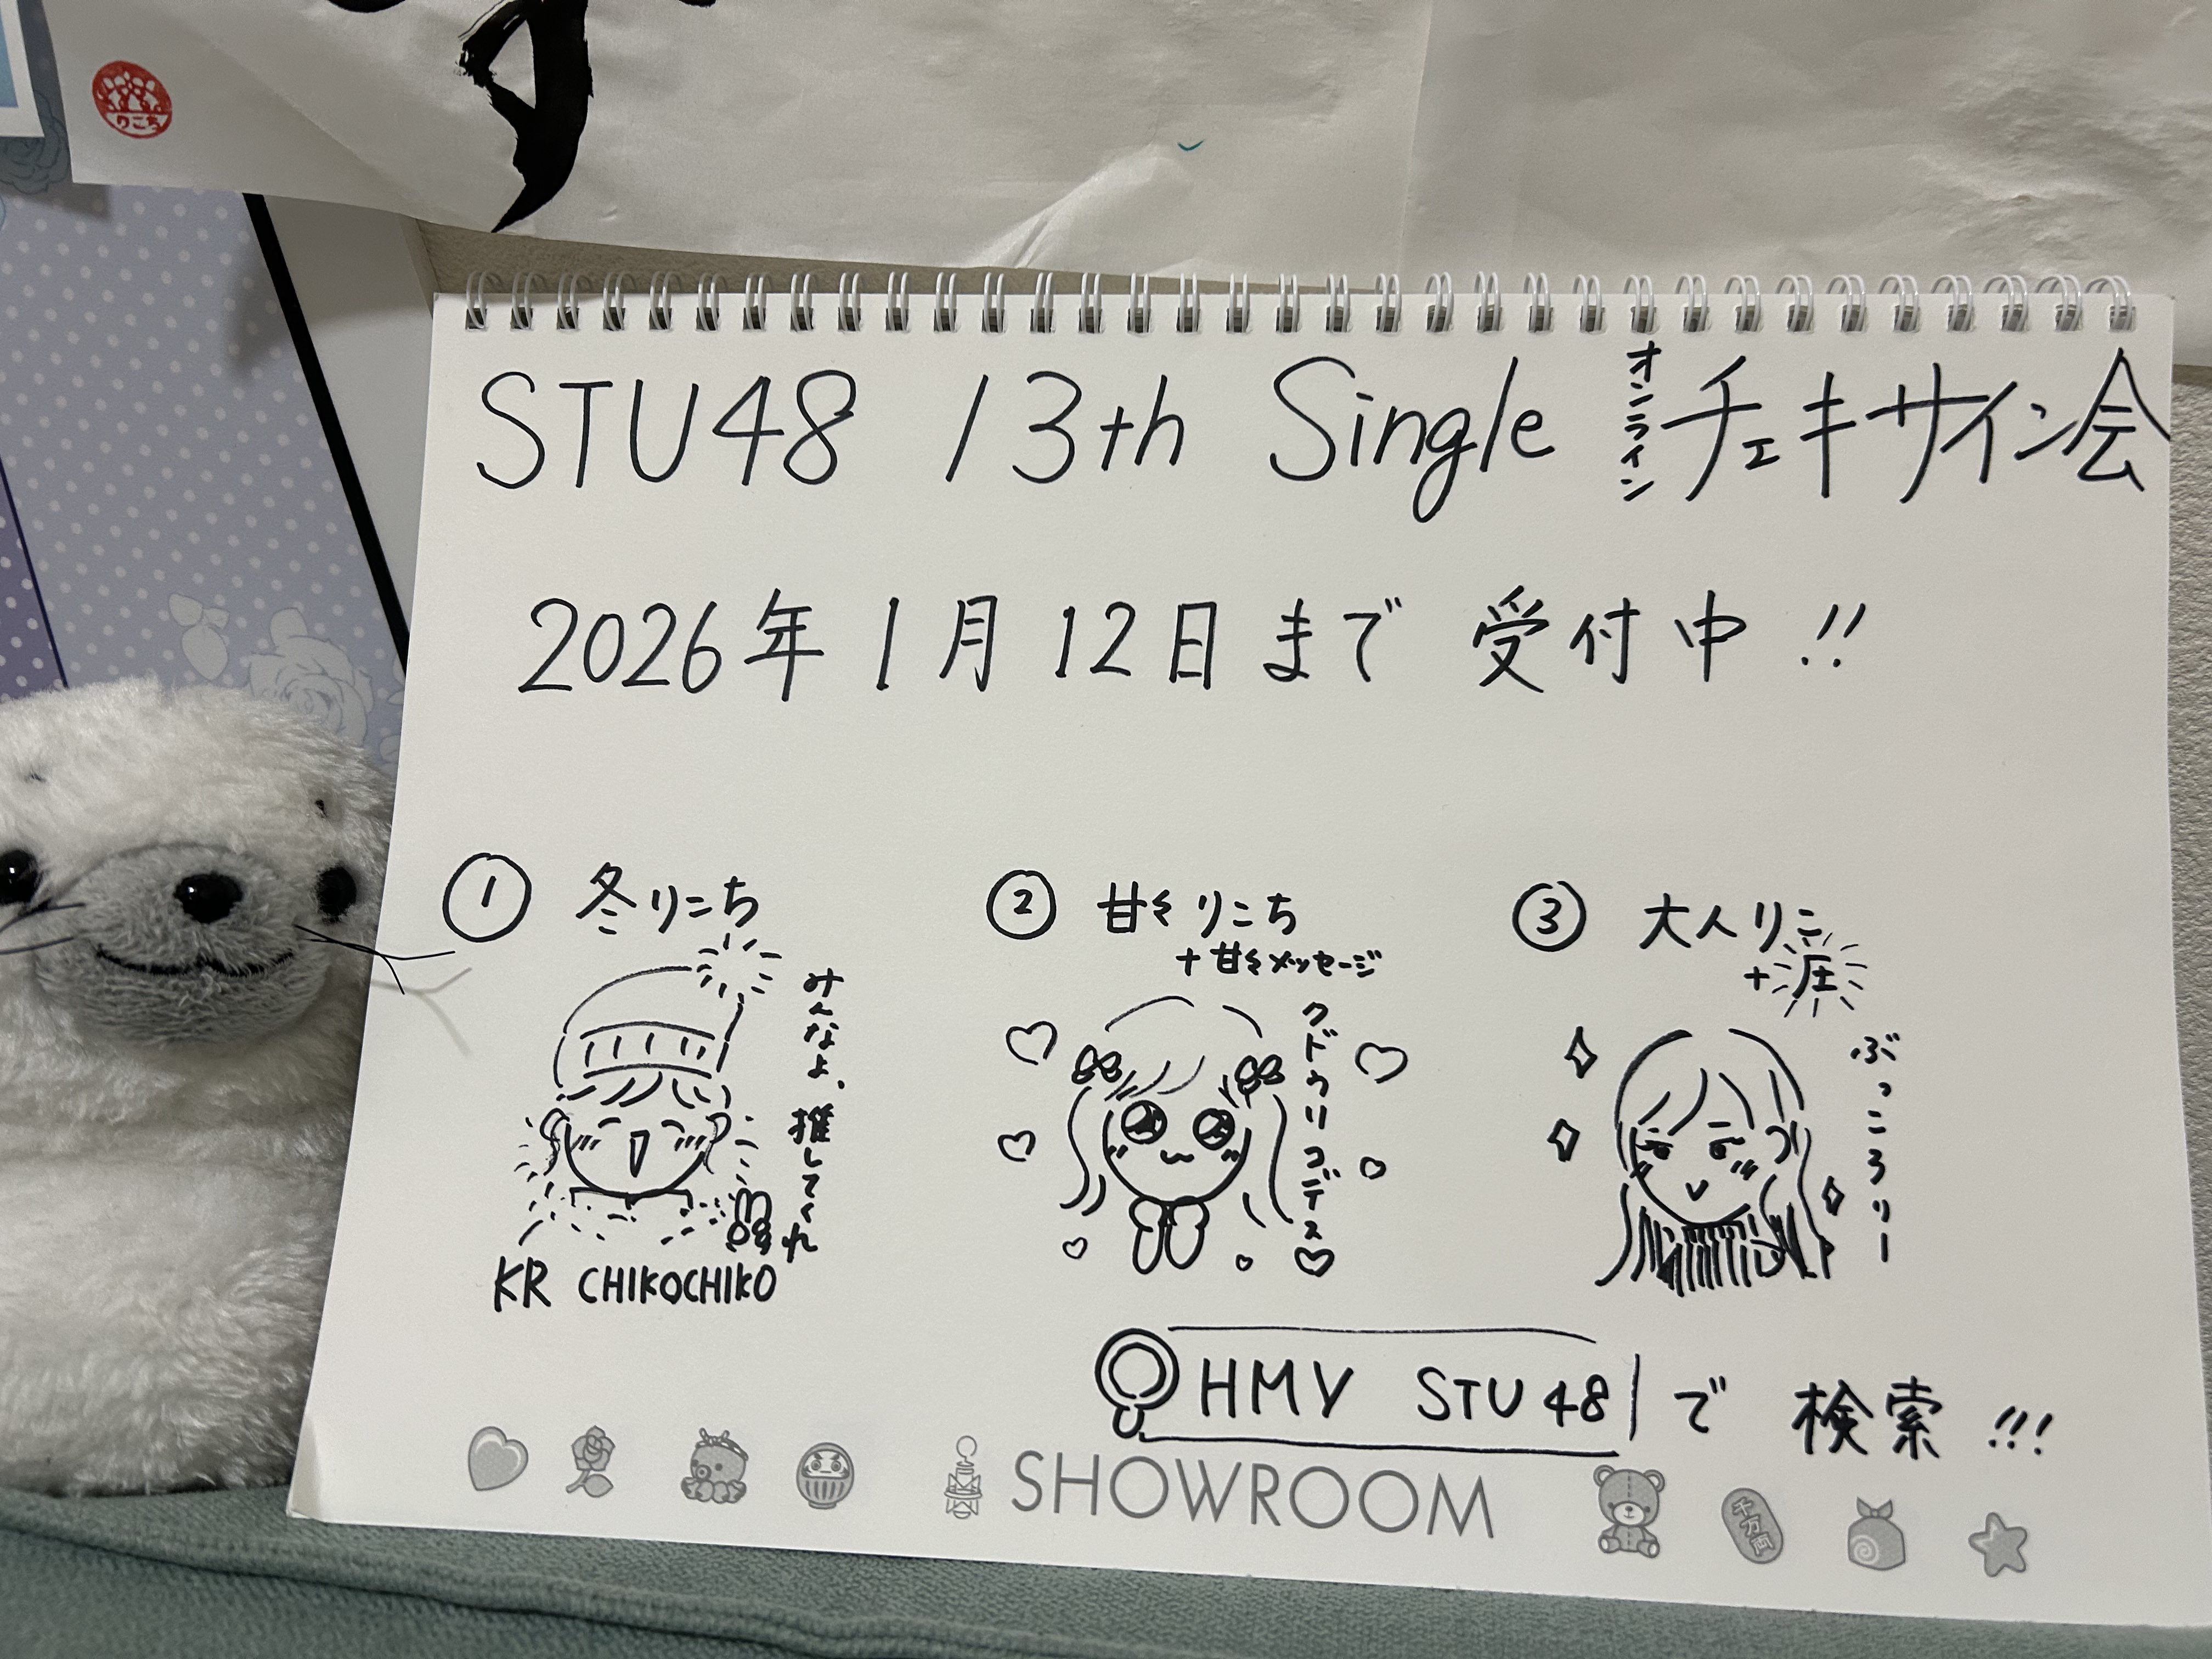 りこち
STU48 13th Single オンライン チェキサイン会
2026年1月12日まで 受付中!!
① 冬りこち
みんなよ、推してくれ
KR CHIKOCHIKO
② 甘々りこち
+甘々メッセージ
クドウリコデス♡
③ 大人りこ
+圧
ぶっころりー
HMV STU48 で 検索!!!
SHOWROOM
千万両